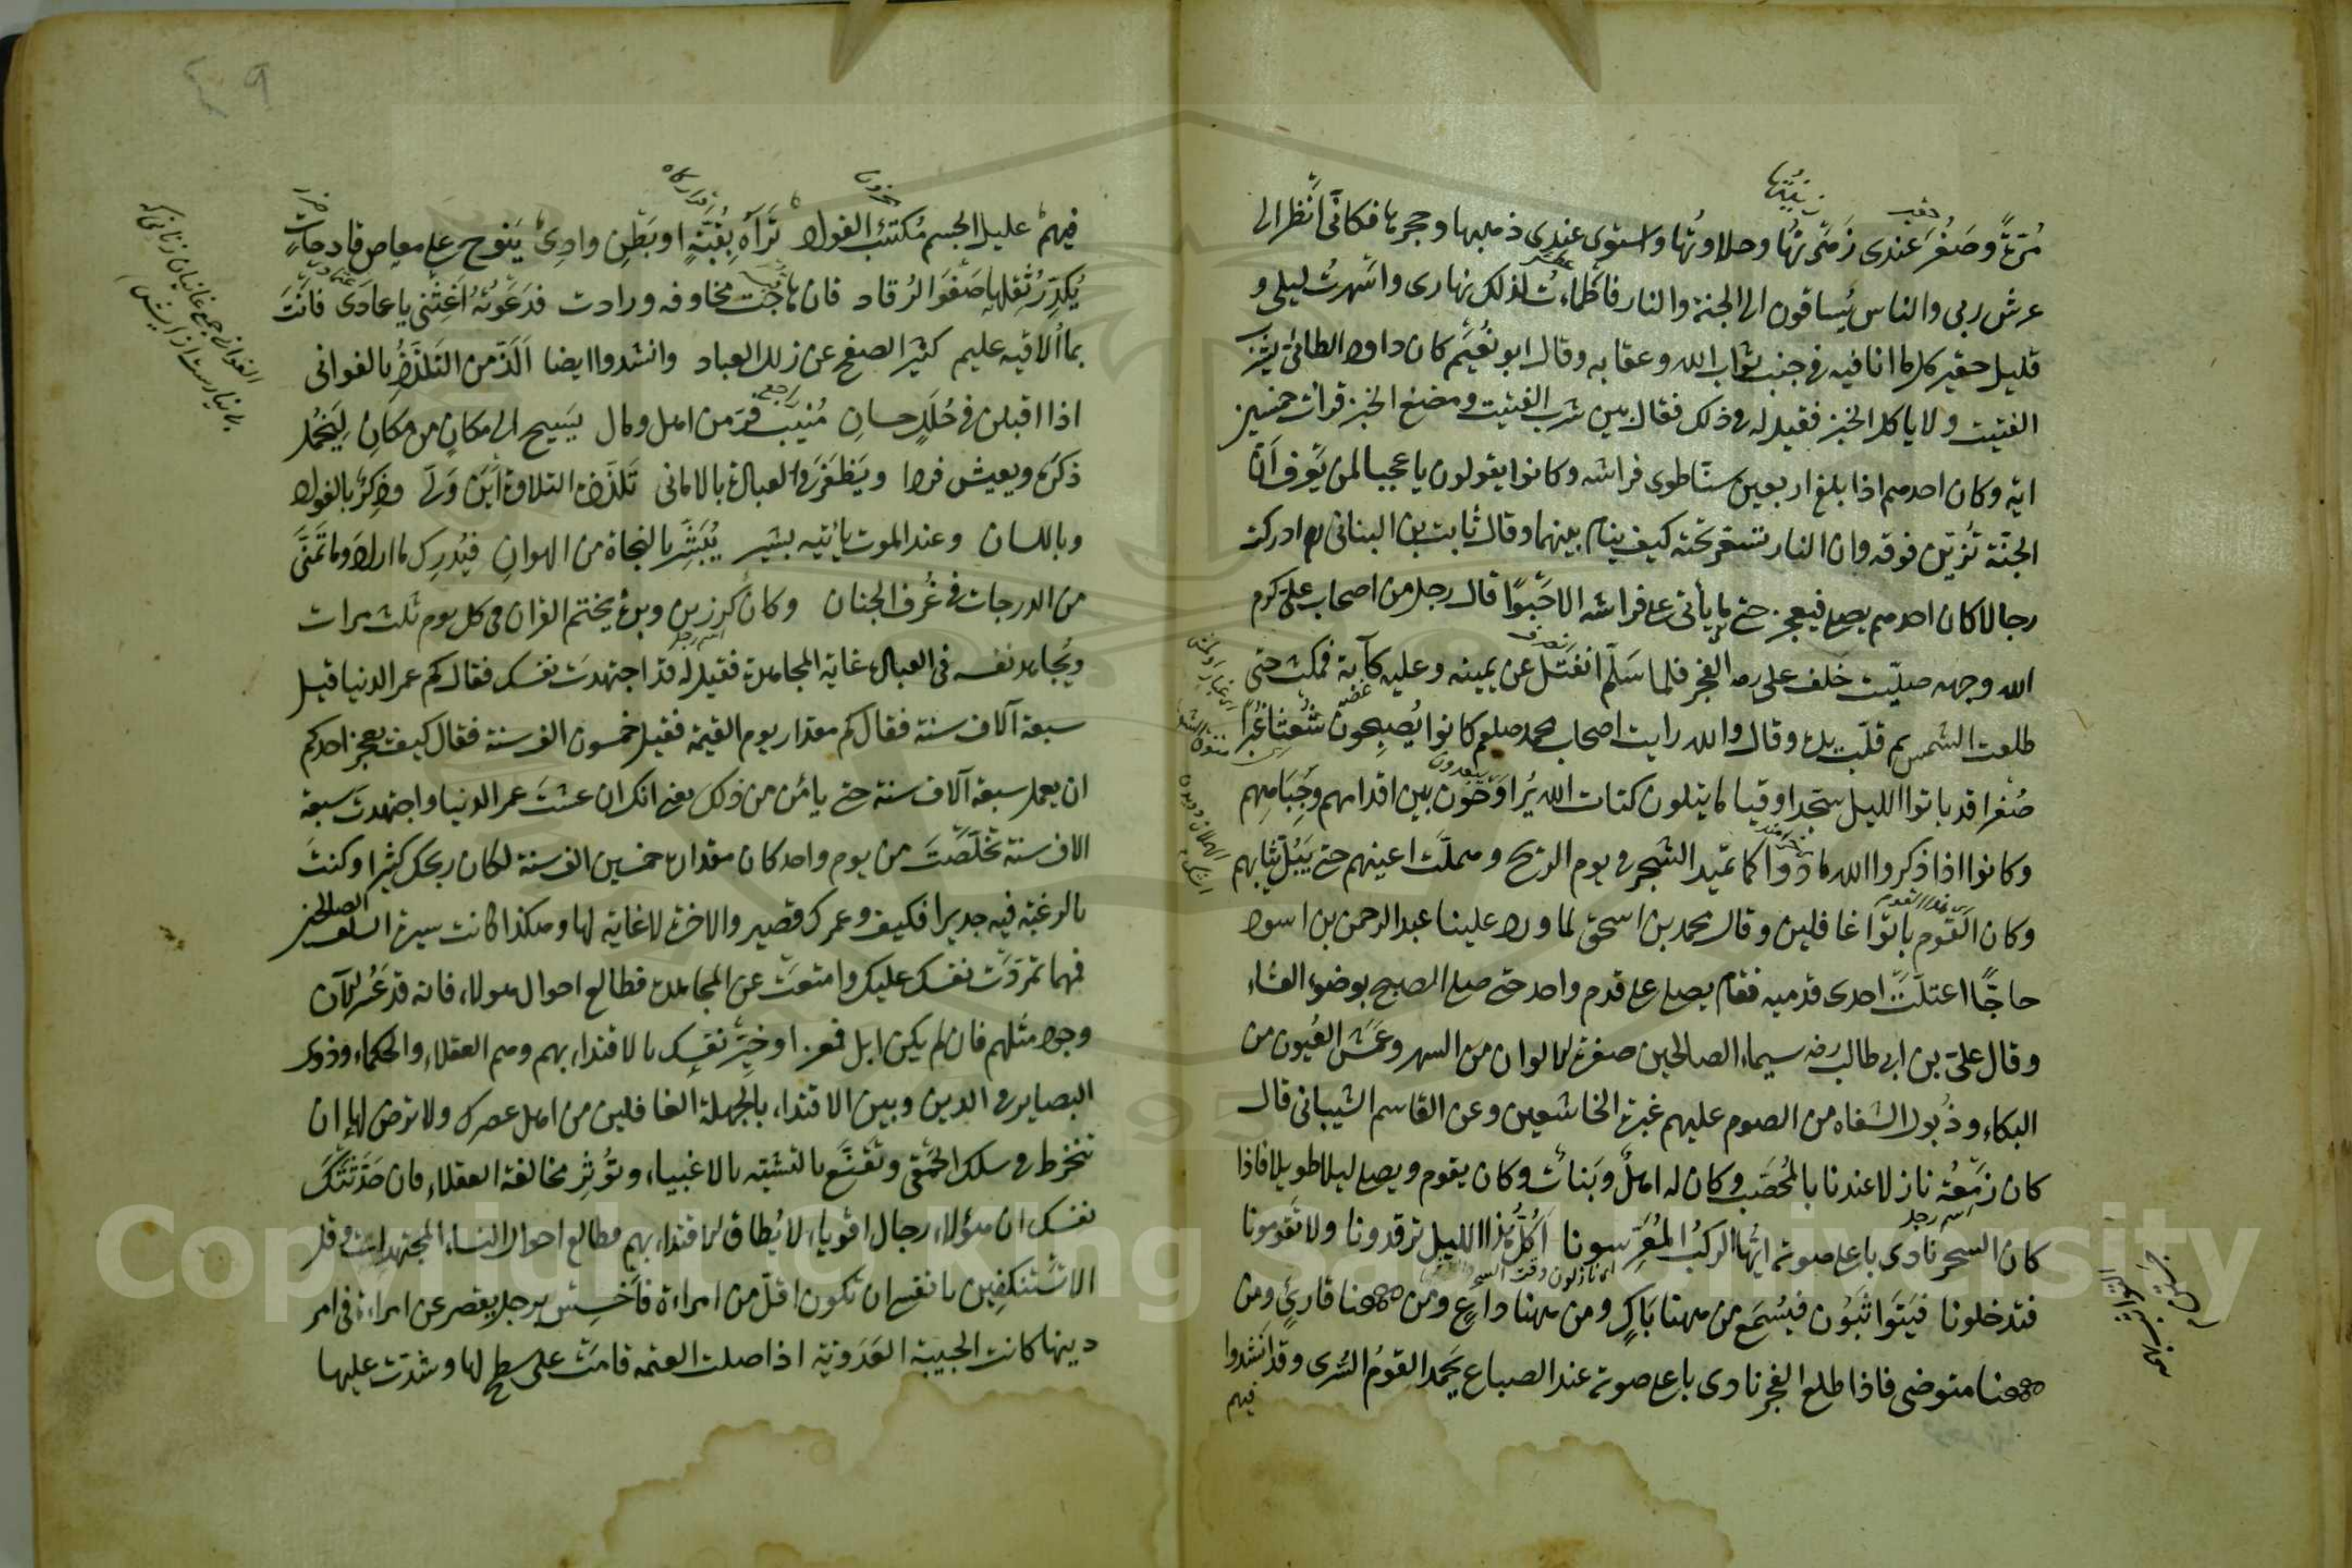 مُرّةً وصَغُرَ عندى زَهْرَتُها وحلاوتُها واستوى عندى ذهبها وحجرها فكانّى انظر الى
عرش ربى والناس يُساقون الى الجنة والنار فاظمأت لذلك نهارى واسهرتُ ليلى و
قليل حقير كل ما انا فيه فى جنب ثواب الله وعقابه وقال ابو نُعَيم كان داود الطائى يشرب
الفتيت ولا ياكل الخبز فقيل له فى ذلك فقال بين شرب الفتيت ومضغ الخبز قراءت خمسين
اية وكان احدهم اذا بلغ اربعين سنة طوى فراشه وكانوا يقولون يا عجبا لمن يعرف انّ
الجنّة تُزيّن فوقه وان النار تسعر تحته كيف ينام بينهما وقال ثابت بن البنانى رم ادركت
رجالا كان احدهم يصلى فيعجز حتى ما يأتى على فراشه الا حَبْوًا قال رجل من اصحاب على كرم
الله وجهه صلّيت خَلف على رضه الفجر فلما سَلّم انفتل عن يمينه وعليه كآبة فمكث حتى
طلعت الشمس ثم قلّب يده وقال والله رايت اصحاب محمد صلعم كانوا يُصبِحون شُعْثًا غُبرًا
صُفرا قد باتوا الليل سجّدا وقياما يتلون كتات الله يُراوَحون بين اقدامهم وجِبَاههم
وكانوا اذا ذكروا الله مادوا كما تميد الشجر فى يوم الريح وهملَت اعينهم حتى يَبُلّ ثيابهم
وكان القوم باتوا غافلين وقال محمد بن اسحق لما ورد علينا عبد الرحمن بن اسود
حاجًّا اعتلّتْ احدى قدميه فقام يصلى على قدم واحد حتى صلى الصبح بوضوء العشاء
وقال على بن ابى طالب رضه سيماء الصالحين صفرة الالوان من السهر وعَمَش العُيون من
البكاء وذُبول الشفاه من الصوم عليهم غبرة الخاشعين وعن القاسم الشيبانى قال
كان زَمْعَة نازلا عندنا بالمُحَصَّب وكان له اهلٌ وبَنات وكان يقوم ويصلى ليلا طويلا فاذا
كان السحر نادى باعلى صوته ايّها الركبُ المُعَرِّسونا اكُلَّ هذا الليل ترقدونا ولا تَقومونا
فتدخلونا فيَتَواثَبُون فيُسْمَع من ههنا باكٍ ومن ههنا داعٍ ومن ههنا قارئٍ ومن
ههنا متوضى فاذا طلع الفجر نادى باعلى صوته عند الصباح يَحمد القومُ السُّرى وقد انشدوا
فيهم
فيهم عليل الجسم مُكتئب الفواد تَرَاه بِقُنّةٍ او بَطْنِ وادِى يَنوح على معاص فادحات
يُكدِّر ثِقلها صَفوَ الرُقاد فان هاجَت مخاوفه وزادت فدَعْوَتُه اغِثْنى يا عمادى فانت
بما اُلاقيه عليم كثير الصفح عن زلل العباد وانشدوا ايضا اَلَذّ من التَلذُّذ بالغوانى
اذا اقبلن فى حُلَلٍ حسانِ مُنيب فرّ من اهل ومال يَسيح الى مكانٍ من مكانِ لِيَخمُل
ذكرَه ويعيش فردا ويَظفَر فى العبادة بالامانى تَلذّذه التلاوة اَينَ وَلّى وذِكرٌ بالفواد
وباللسان وعند الموت ياتيه بشير يُبَشِّر بالنجاة من الهوانِ فيُدرِك ما اراد وما تَمنّى
من الدرجات فى غُرف الجنان وكان كرز بن وبرة يختم القران فى كل يوم ثلث مرات
ويُجاهد نفسه فى العبادة غاية المجاهدة فقيل له قد اجتهدت نفسك فقال كم عمر الدنيا قيل
سبعة آلاف سنة فقال كم مقدار يوم القيمة فقيل خمسون الف سنة فقال كيف يعجز احدكم
ان يعمل سبعة آلاف سنة حتى يأمن من ذلك يعنى انك ان عشتَ عمر الدنيا واجتهدتَ سبعة
الاف سنة تخلّصتَ من يوم واحد كان مقداره خمسين الف سنة لكان ربحك كثيرا وكنتَ
بالرغبة فيه جديرا فكيف وعمرك قصير والاخرة لا غاية لها وهكذا كانت سيرة السلف الصالحين
فمهما تمرّدَت نفسك عليك وامتنعَت عن المجاهدة فطالع احوال هولاء فانه قد عَسُر الآن
وجود مثلهم فان لم يكن ابل فمعز او خيِّر نفسك بالاقتداء بهم وهم العقلاء والحكماء وذوى
البصاير فى الدين وبين الاقتداء بالجهلة الغافلين من اهل عصرك ولا ترض لها ان
تنخرط فى سلك الحَمْقى وتَقنَع بالتشبّه بالاغبياء وتُوثِر مخالفة العقلاء فان حَدّثَتْكَ
نفسك ان هؤلاء رجال اقوياء لا يُطاق الاقتداء بهم فطالع احوال النساء المجتهدات وقل
الا تَسْتنكفين يا نفس ان تكون اقلّ من امراءة فاَخسِسْ برجل يقصر عن امراءة فى امر
دينها كانت الحبيبة العَدَويّة اذا صلت العتمه قامَت على سطح لها وشدّت عليها